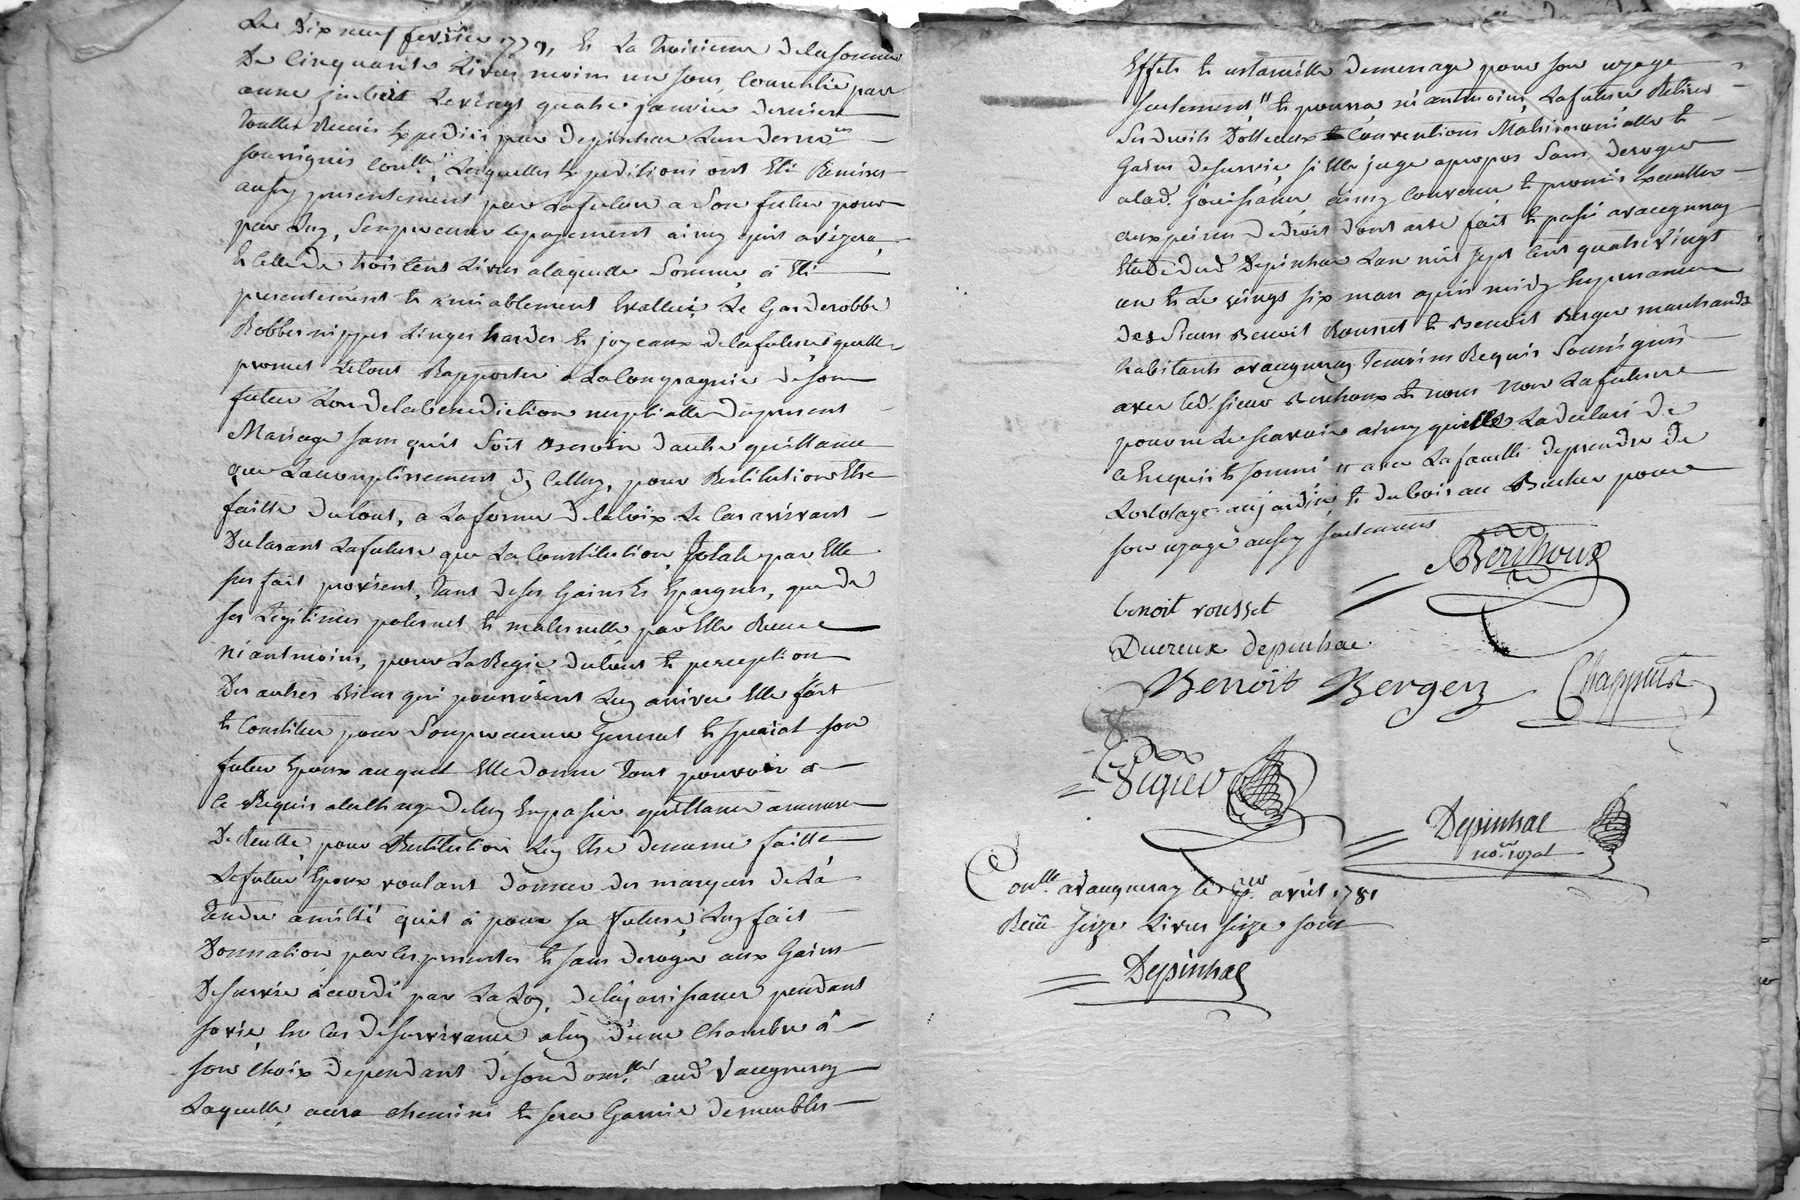 Le Dix neuf fevrier 1779, & La troisieme de la somme
De Cinquante Livres moins un sous, Consentie par
anne jubert Le vingt quatre janvier dernier
touttes Recues & Expediées par Depinhac L'un des nores
soussignés Conlle., Lesquelles Expeditions ont Eté Remises
aussy presentement par La future a Son futur pour
par Luy, Sen procurer le payement ainsy quil avizera,
Et celle de trois cens Livres a laquelle Somme, à Eté
presentement & amiablement Evalluée, Le Garderobbe
Robbes nippes Linges hardes & joyeaux de la future quelle
promet Letout Rapporter a La Compagnie de son
futur Lors de la benediction nuptialle du present
Mariage sans quil Soit Besoin d'autre quittance
que Lacomplissement dy Celluy, pour Restitution Etre
faitte du tout, a La forme de la loix Le Cas arrivant
Declarant La future que La Constitution totale par Elle
sus fait provient, tant de ses Gains & Epargnes, que de
ses Legitimes paternel & maternelle par Elle Recue
niantmoins, pour La Regie du tout & perception
Des autres Biens qui pourroient Luy arriver Elle fait
& Constitue pour Son procureur General & Special son
futur Epoux auquel Elle donne tout pouvoir a
Ce Requis a la Charge de luy En passer quittance a mesure
De Recette, pour Restitution Luy Etre de meme faitte
Le futur Epoux voulant donner des marques de La
tendre amitié quil à pour sa future, Luy fait
Donnation par les presentes & sans deroger aux Gains
De survie acordé par La Loy, de la jouissance pendant
sa vie, En Cas de survivance a luy D'une Chambre a
son Choix dependant de son domlle. aud. Vaugneray
Laquelle, aura Chemine & sera Garnie de meubles
Effets & ustancille de menage pour son uzage
seulement, & pourra niantmoins, La future Retirer
Ses droits Dotteaux Conventions Matrimonialle &
Gains de survie, si Elle juge apropos Sans deroger
a lad. jouissance, ainsy Convenu & promis Executter
aux peines de droit dont acte fait & passé a vaugneray
Etude dud. Depinhac Lan mil sept Cent quatre vingt
un & Le vingt six mars apres midy En presence
des Sieurs Benoit Rousset & Benoit Berger marchands
habitants a vaugneray temoins Requis Soussignés
avec led. sieur Berthoux & nous non La future
pour ne Le scavoir ainsy quelle La declaré de
ce Enquis & sommé " avec La faculté de prendre de
Lortolage au jardin & du bois au Bucher pour
son uzage aussy seulement
Berthoux
benoit rousset
Ducreux depinhac
Benoit Berger Chappuis
Depinhac
no.re royal
Conllé a vaugneray le 1er avril 1781
Recu seize Livres seize sous
Depinhac